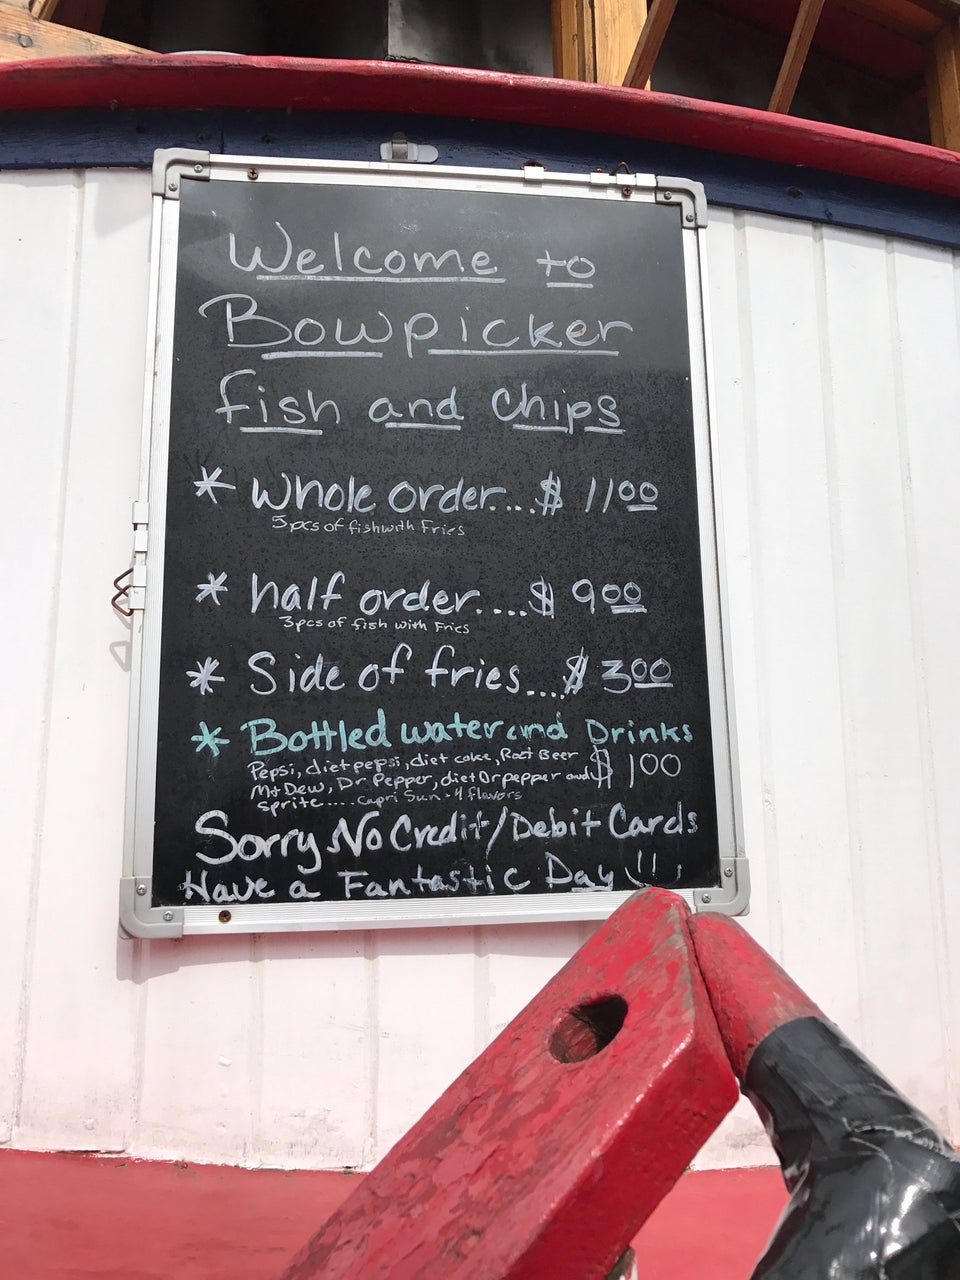 Welcome to
Bowpicker
fish and Chips
* Whole order....$ 11 00
5pcs of fish with Fries
* half order....$ 9 00
3pcs of fish with Fries
* Side of fries....$ 3 00
* Bottled water and Drinks
Pepsi, diet pepsi, diet coke, Root Beer $ 1 00
Mt Dew, Dr. Pepper, diet Dr pepper and
sprite.... Capri Sun - 4 flavors
Sorry No Credit/Debit Cards
Have a Fantastic Day !!!